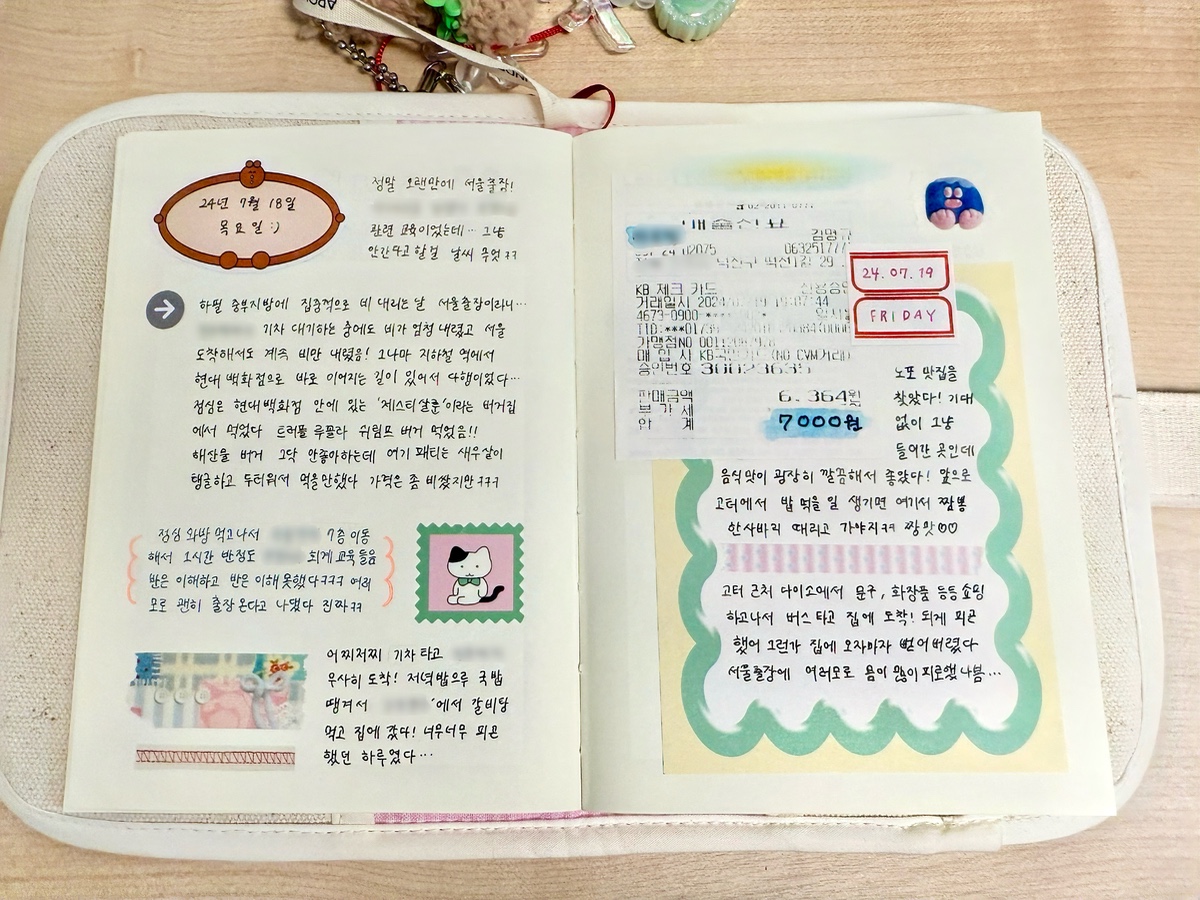 24년 7월 18일
목요일 :)
정말 오랜만에 서울출장!
관련 교육이었는데… 그냥
안간다고 할걸 날씨 무엇ㅋㅋ
하필 중부지방에 집중적으로 비 내리는 날 서울출장이라니…
기차 대기하는 중에도 비가 엄청 내렸고 서울
도착해서도 계속 비만 내렸음! 그나마 지하철 역에서
현대 백화점으로 바로 이어지는 길이 있어서 다행이었다…
점심은 현대백화점 안에 있는 '제스티살룬'이라는 버거집
에서 먹었다 트러플 루꼴라 쉬림프 버거 먹었음!!
해산물 버거 그닥 안좋아하는데 여기 패티는 새우살이
탱글하고 두터워서 먹을만했다 가격은 좀 비쌌지만ㅋㅋㅋ
점심 와방 먹고나서 7층 이동
해서 1시간 반정도 되게 교육 들음
반은 이해하고 반은 이해 못했다ㅋㅋㅋ 여러
모로 괜히 출장 온다고 나댔다 진짜ㅋㅋ
어찌저찌 기차 타고
무사히 도착! 저녁밥으루 국밥
땡겨서 에서 갈비탕
먹고 집에 갔다! 너무너무 피곤
했던 하루였다…
매출전표
김명규
02075 063251777
29
KB 체크 카드 신용승인
거래일시 2024 19:07:44
4673-0900- 일시불
TID:***01739
가맹점NO
매 입 사 KB국민카드(NO CVM거래)
승인번호 30023635
판매금액 6,364원
부 가 세
합 계 7000원
24.07.19
FRIDAY
노포 맛집을
찾았다! 기대
없이 그냥
들어간 곳인데
음식맛이 굉장히 깔끔해서 좋았다! 앞으로
고터에서 밥 먹을 일 생기면 여기서 짬뽕
한사바리 때리고 가야지ㅋㅋ 짱맛♡♡
고터 근처 다이소에서 문구, 화장품 등등 쇼핑
하고나서 버스 타고 집에 도착! 되게 피곤
했어 그런가 집에 오자마자 뻗어버렸다
서울출장에 여러모로 몸이 많이 피로했나봄…